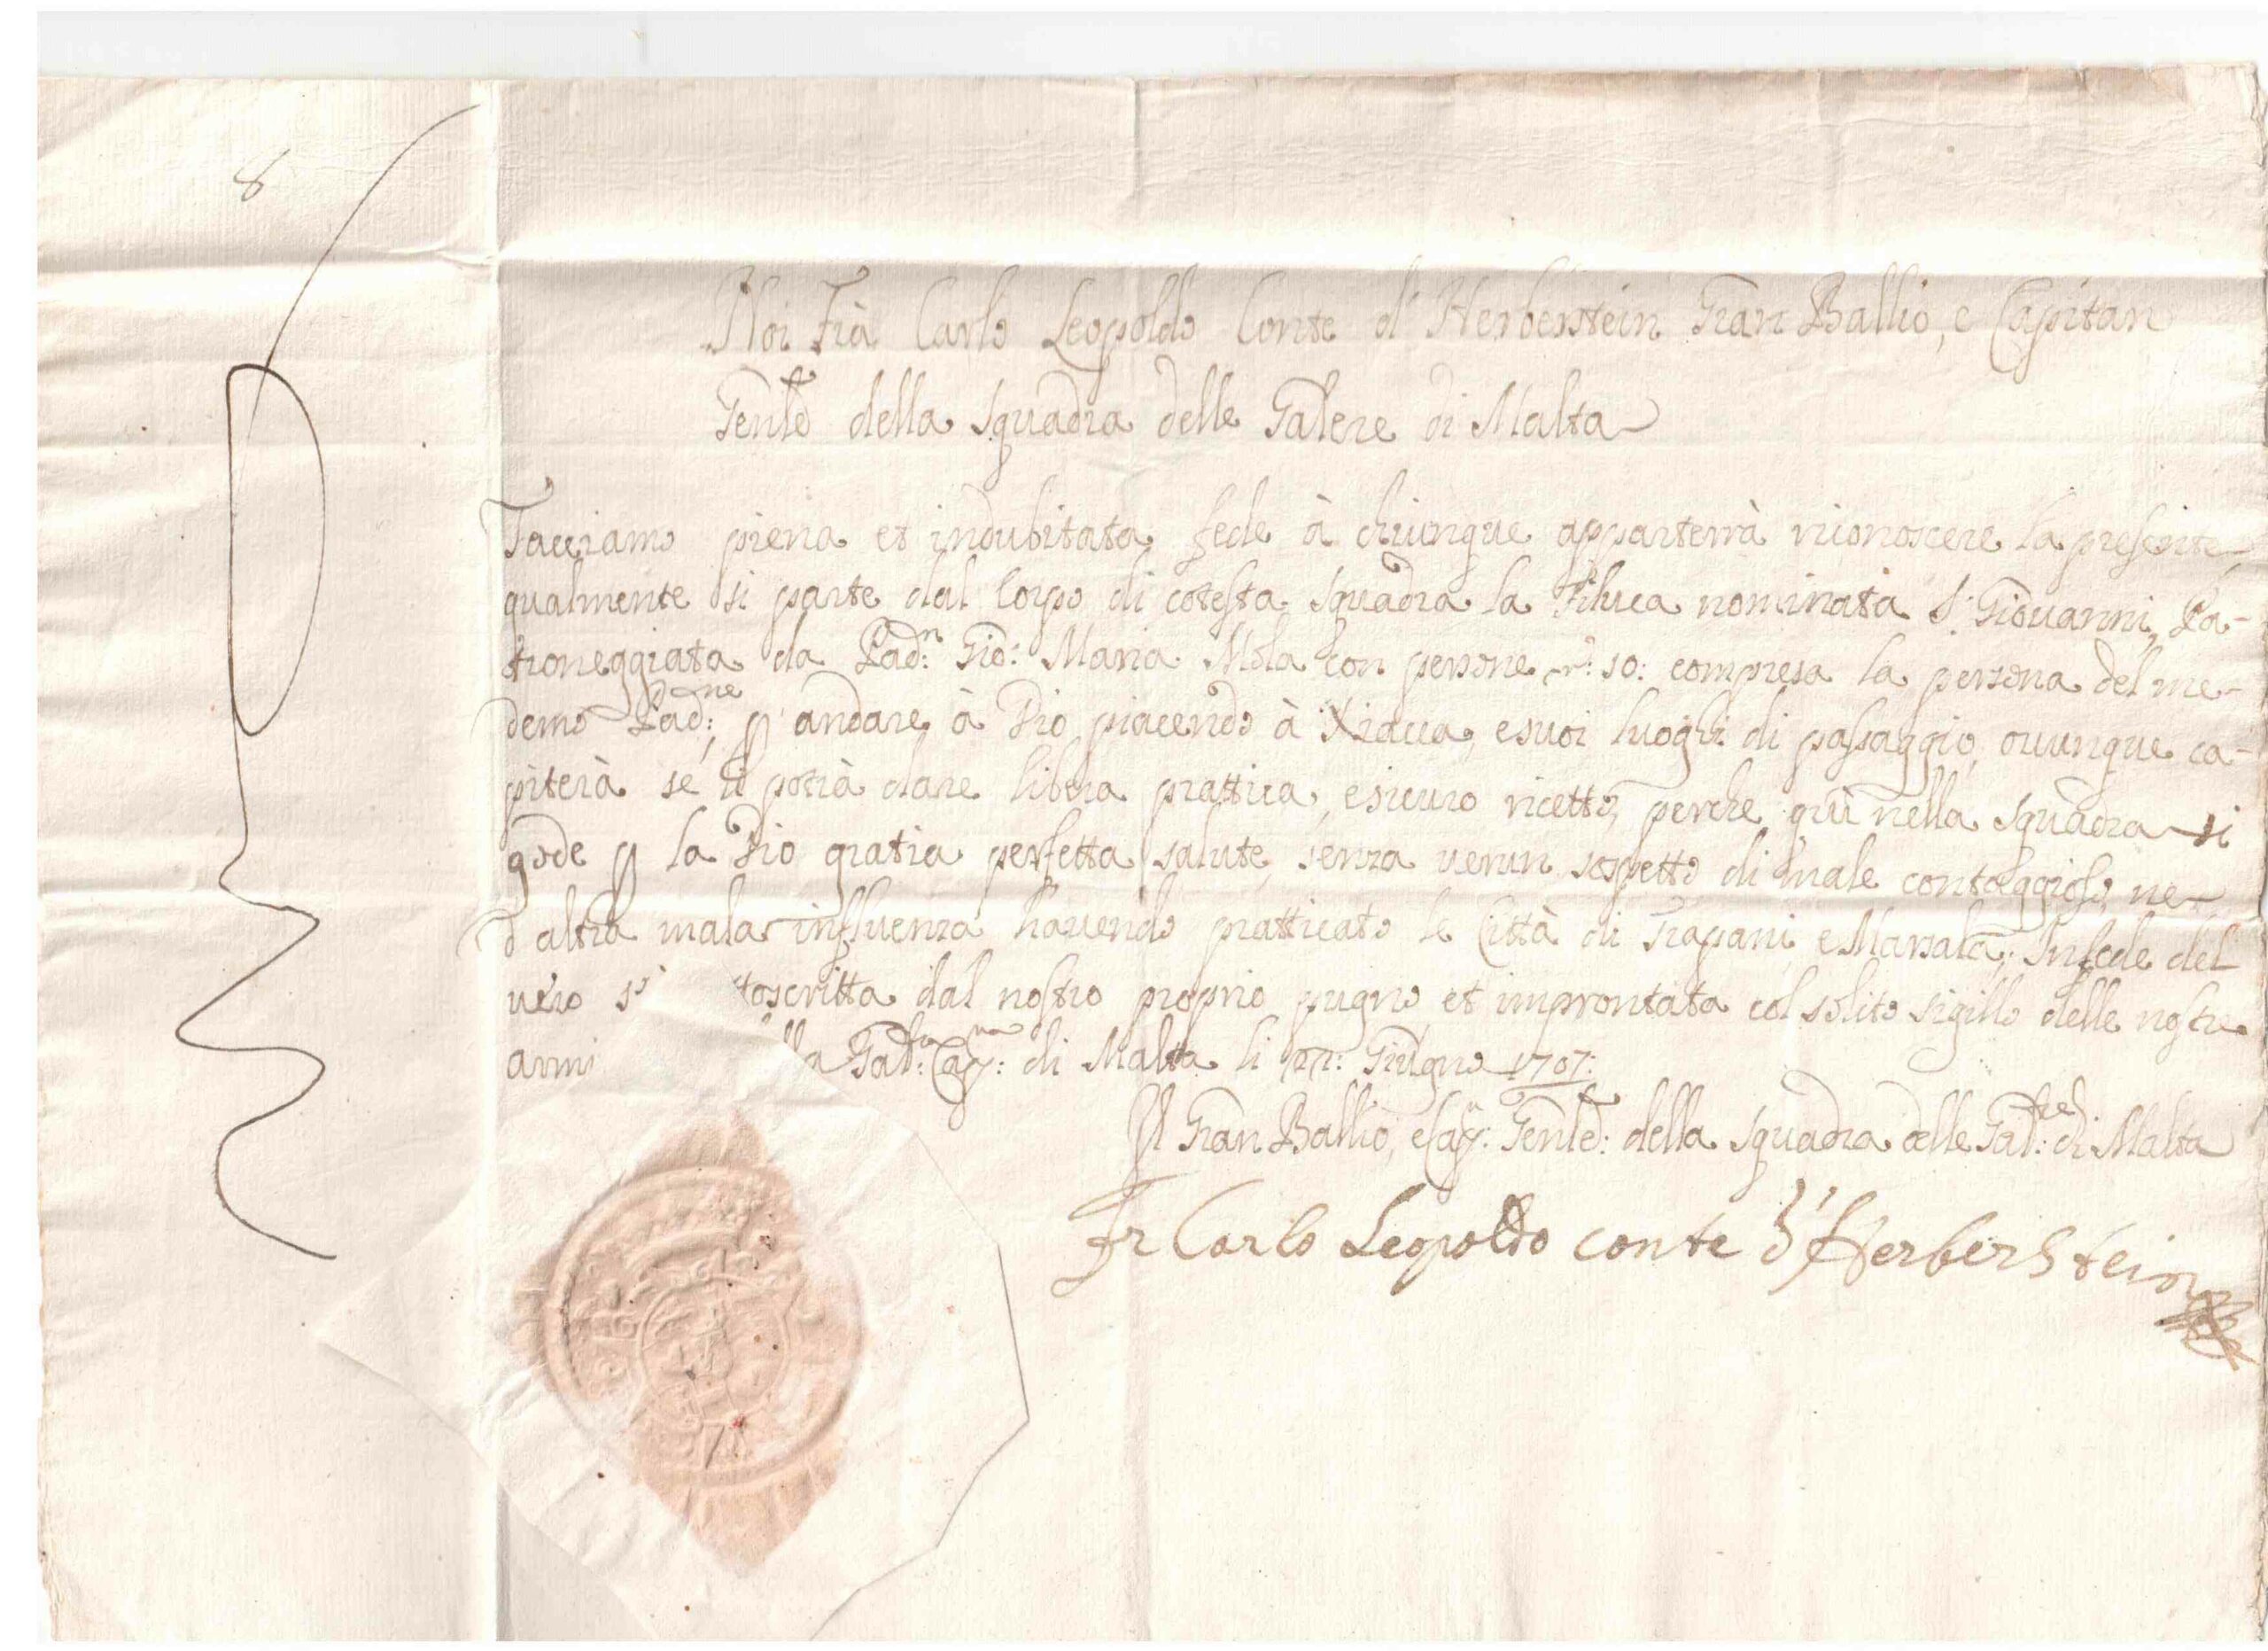 8
Noi Frà Carlo Leopoldo Conte d'Herberstein Gran Ballio, e Capitan
Genle della Squadra delle Galere di Malta
Facciamo piena et indubitata fede à chiunque apparterrà riconoscere la presente,
qualmente si parte dal Corpo di cotesta Squadra la Filuca nominata S. Giovanni, Pa-
troneggiata da Padn: Gio: Maria Mola con persone nº: 10: compresa la persona del me-
demo Padne:, p andare à Dio piacendo à Xiacca, e suoi luoghi di passaggio, ovunque ca-
piterà se li potrà dare libera prattica, e sicuro ricetto, perche qui nella Squadra si
gode p la Dio gratia perfetta salute, senza verun sospetto di male contaggioso, ne
d'altra mala influenza havendo pratticato le Città di Trapani, e Marsala; In fede del
vero toscritta dal nostro proprio pugno, et improntata col solito sigillo delle nostre
armi Gal: Cap: di Malta li Giugno 1707:
Il Gran Ballio, e Cap: Genle: della Squadra delle Galre: di Malta
Fr Carlo Leopoldo conte d'Herberstein